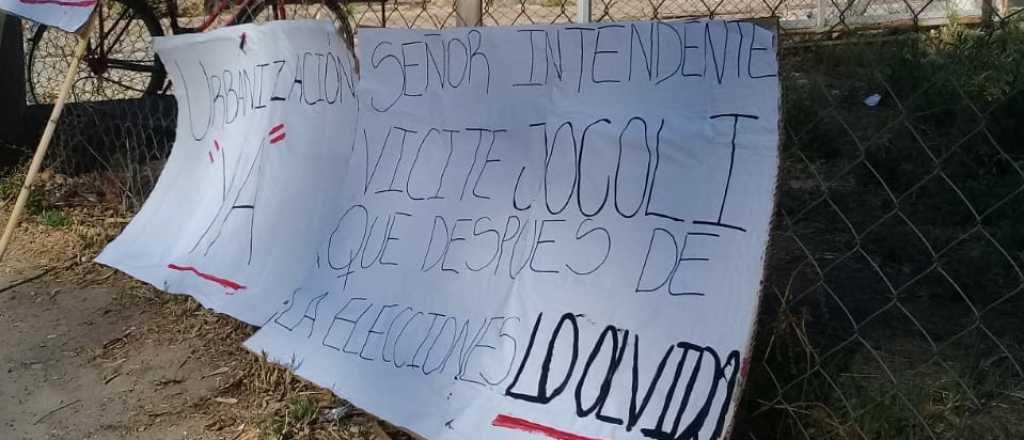 URBANIZACIÓN
"YA"
SEÑOR INTENDENTE
VICITE JOCOLI
QUE DESPUES DE
LA ELECCIONES LO OLVIDA